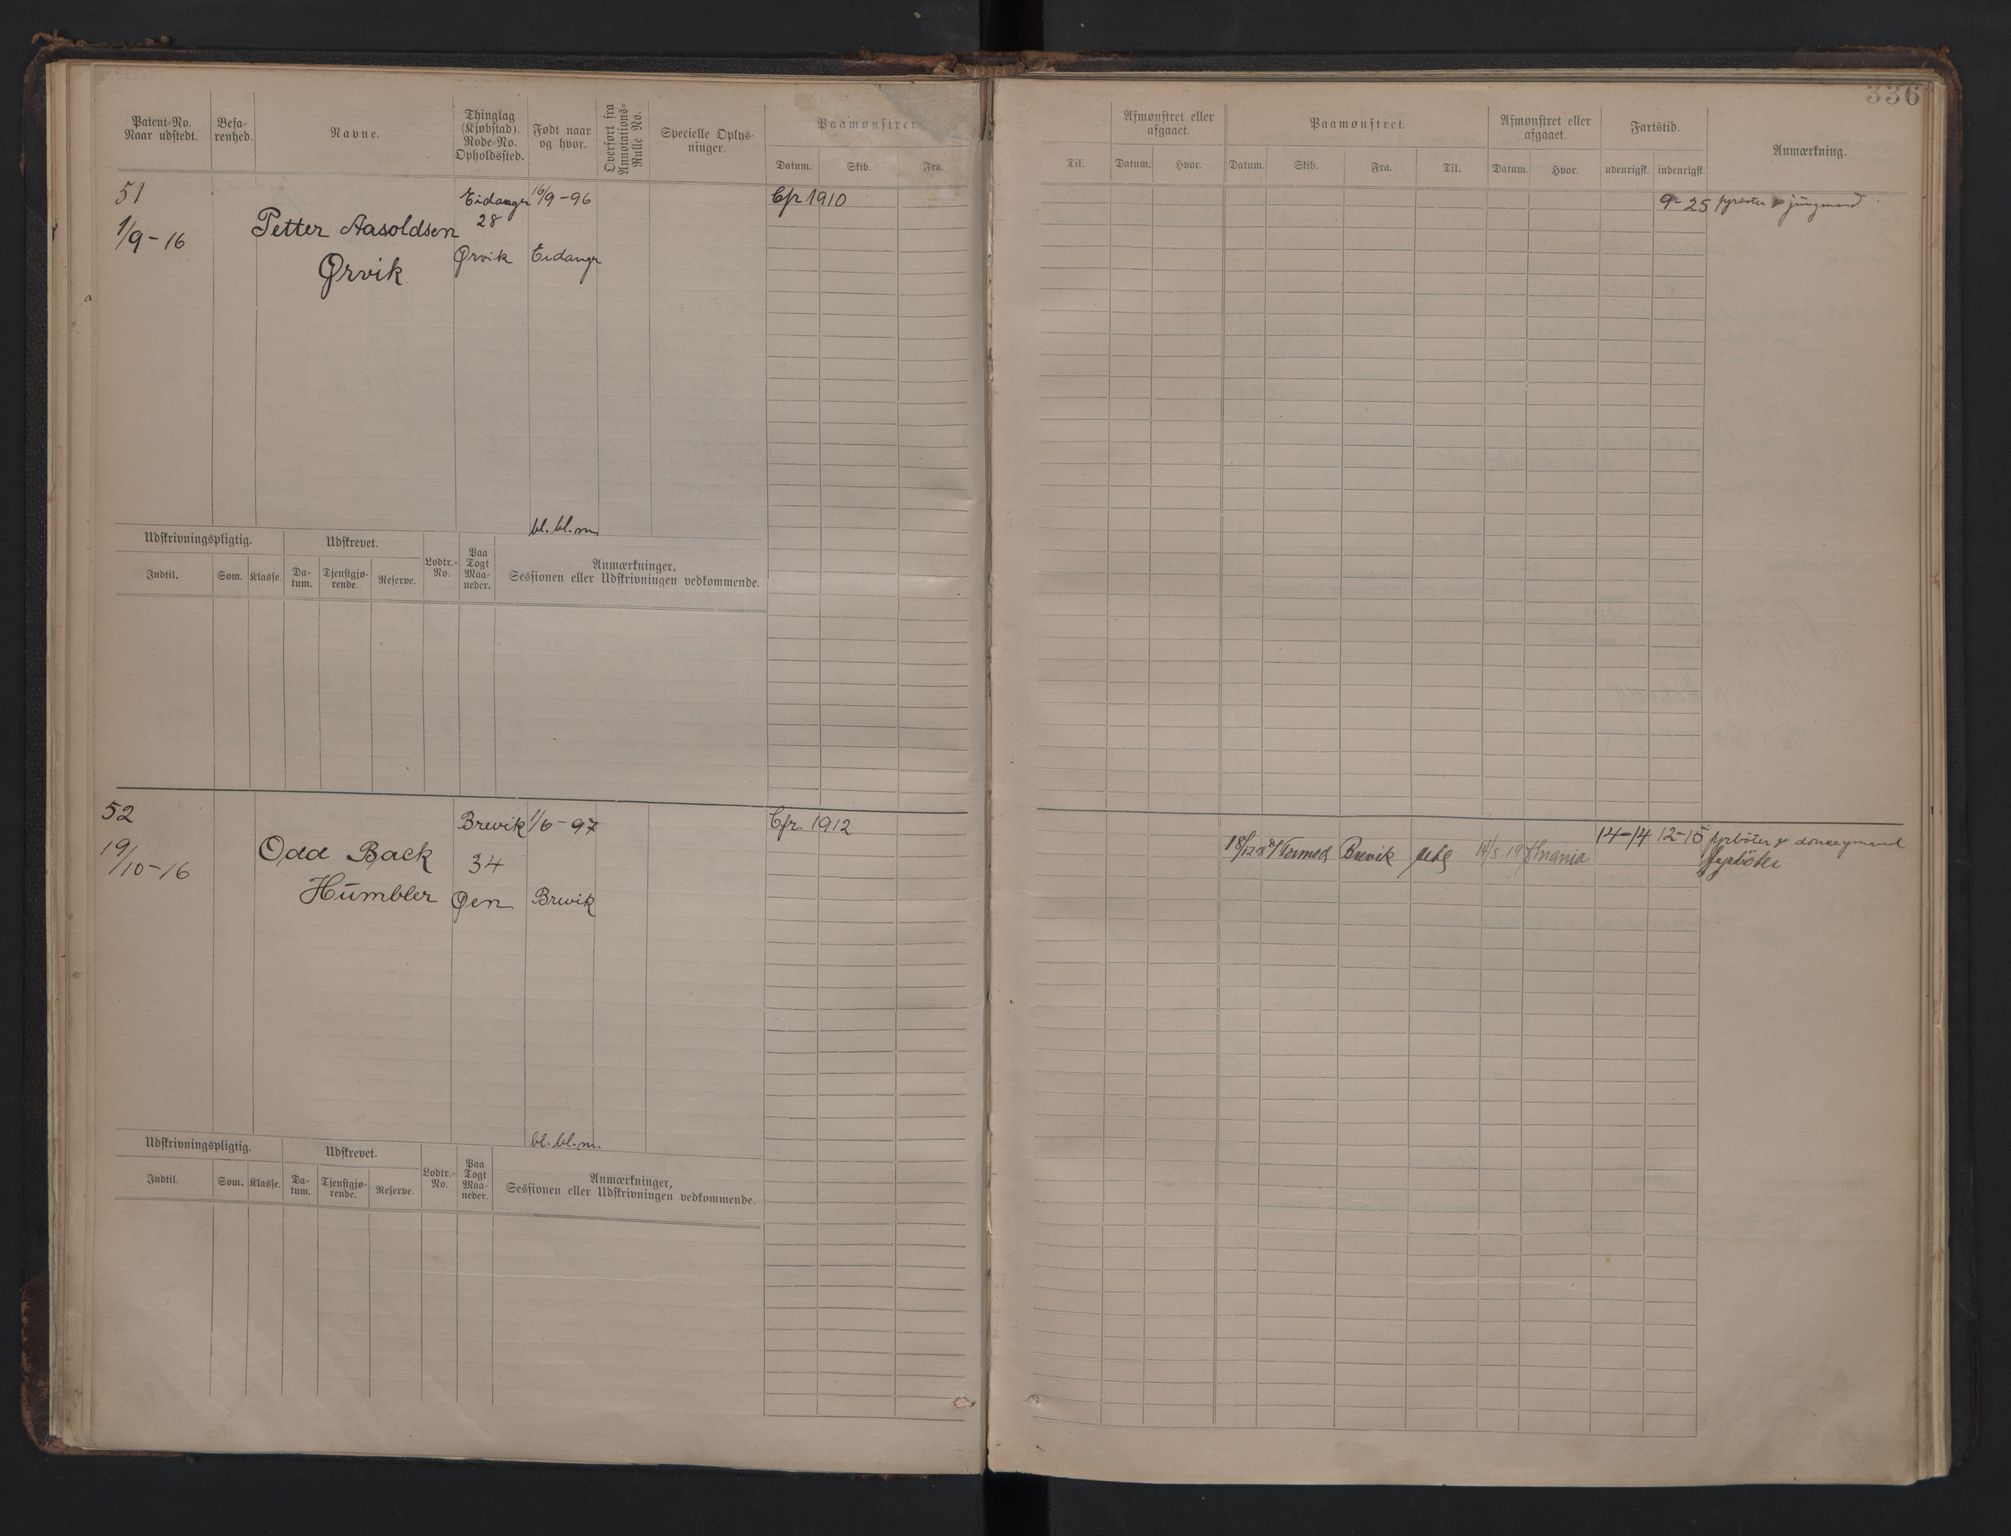 336
Patent-No.
Naar udstedt.
Befa-
renhed.
Navne.
Thinglag
(Kjøbstad).
Rode-No.
Opholdssted.
Født naar
og hvor.
Overført fra
Annotations-
Rulle No.
Specielle Oplys-
ninger.
Paamønstret.
Datum. Skib. Fra.
Til.
Afmønstret eller
afgaaet.
Datum. Hvor.
Paamønstret.
Datum. Skib. Fra. Til.
Afmønstret eller
afgaaet.
Datum. Hvor.
Fartstid.
udenrigsk. indenrigsk.
Anmærkning.
51 Eidangr 16/9-96 Cfr 1910 9-25 fyrbøter jungmand
1/9-16 Petter Aasoldsen 28
Ørvik Ørvik Eidangr
bl. bl. m
Udskrivningspligtig. Udskrevet.
Indtil. Som. Klasse. Da-
tum. Tjenstgjø-
rende. Reserve. Lodtr.-
No. Paa
Togt
Maa-
neder.
Anmærkninger,
Sessionen eller Udskrivningen vedkommende.
52 Brevik 1/6-97 Cfr. 1912 14-14 12-15 fyrbøter
19/10-16 Odd Back 34 Brevik 14/5 19 fyrbøter
Humbler Øen Brevik
bl. bl. m.
Udskrivningspligtig. Udskrevet.
Indtil. Som. Klasse. Da-
tum. Tjenstgjø-
rende. Reserve. Lodtr.-
No. Paa
Togt
Maa-
neder.
Anmærkninger,
Sessionen eller Udskrivningen vedkommende.